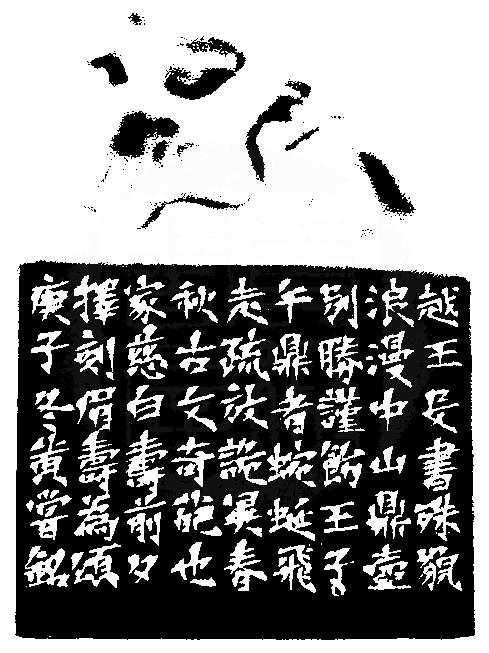 越王書殊
浪漫中山鼎壺
別勝謹飭王子
午鼎者蜿蜒飛
走疏放詭異春
秋古文奇葩也
家慈白壽前夕
擇刻眉壽為頌
庚子冬黃嘗銘